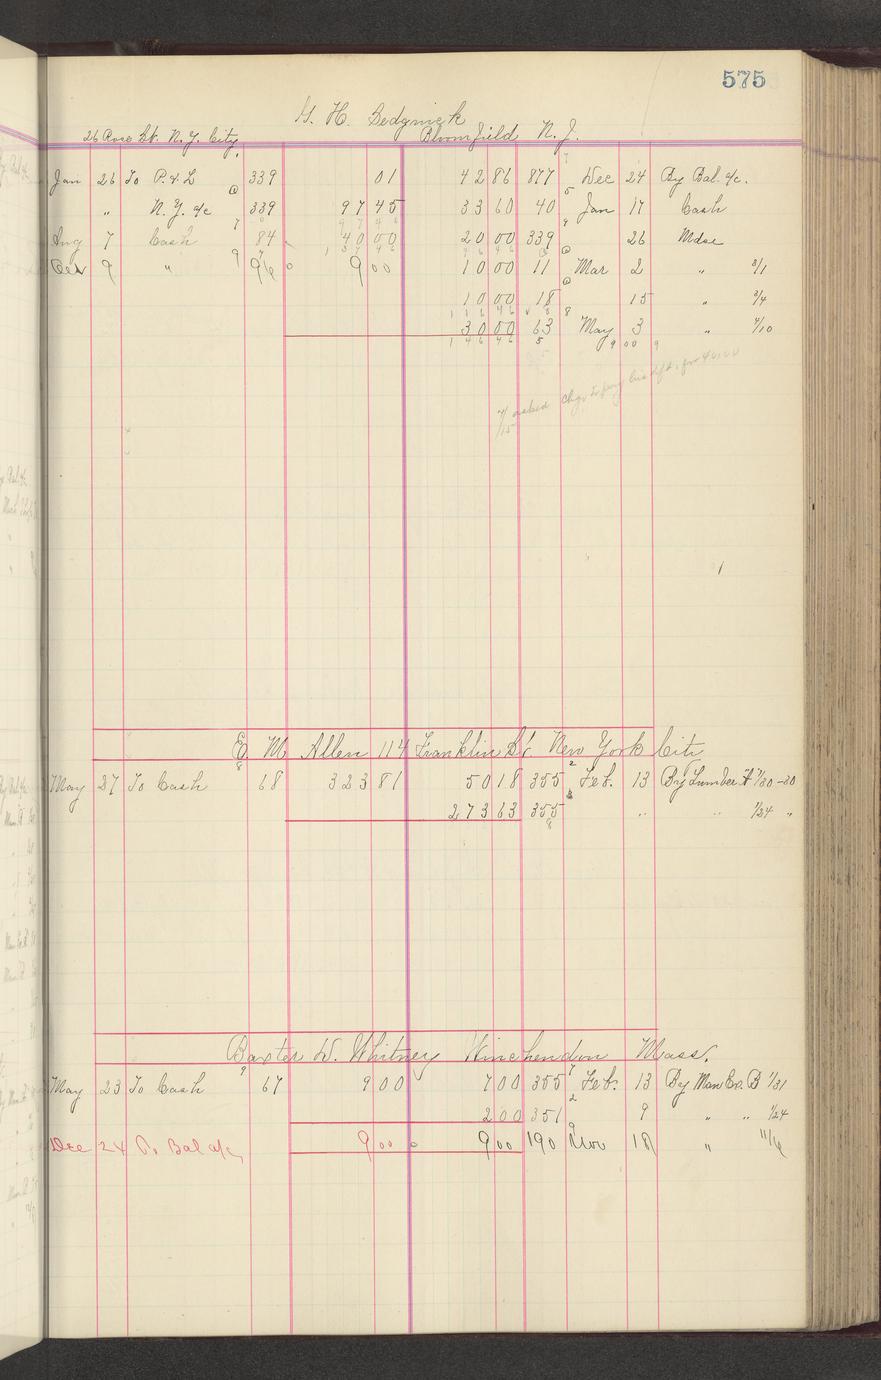 575
G. H. Sedgwick
26 Rose St. N. Y. City, Bloomfield N. J.
Jan 26 To P. & L 339 01 42 86 877 Dec 24 By Bal. a/c.
" N. Y. a/c 339 97 45 33 60 40 Jan 17 Cash
Aug 7 Cash 84 40 00 20 00 339 26 Mdse
Oct 9 " 96 9 00 10 00 11 Mar 2 " 3/1
10 00 18 15 " 3/4
30 00 63 May 3 " 4/10
146 46 9 00
asked chge to pay for 40.00
E. M. Allen 114 Franklin St New York City
May 27 To Cash 68 323 81 50 18 355 Feb. 13 By Lumber A 1/30 -30
273 63 355 " " 1/24 "
Baxter D. Whitney Winchendon Mass.
May 23 To Cash 67 9 00 7 00 355 Feb. 13 By Man Ex. B 1/31
2 00 351 9 " " 1/24
Dec 24 To Bal a/c 9 00 9 00 190 Nov 18 " 11/16